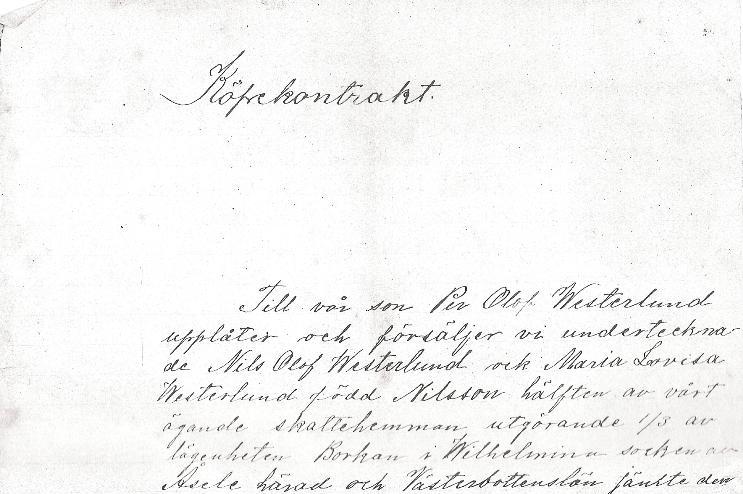 Köpekontrakt.
Till vår son Per Olof Westerlund
upplåter och försäljer vi underteckna-
de Nils Olof Westerlund och Maria Lovisa
Westerlund född Nilsson hälften av vårt
ägande skattehemman utgörande 1/3 av
lägenheten Borkan i Wilhelmina socken av
Åsele härad och Västerbottenslän jämte den